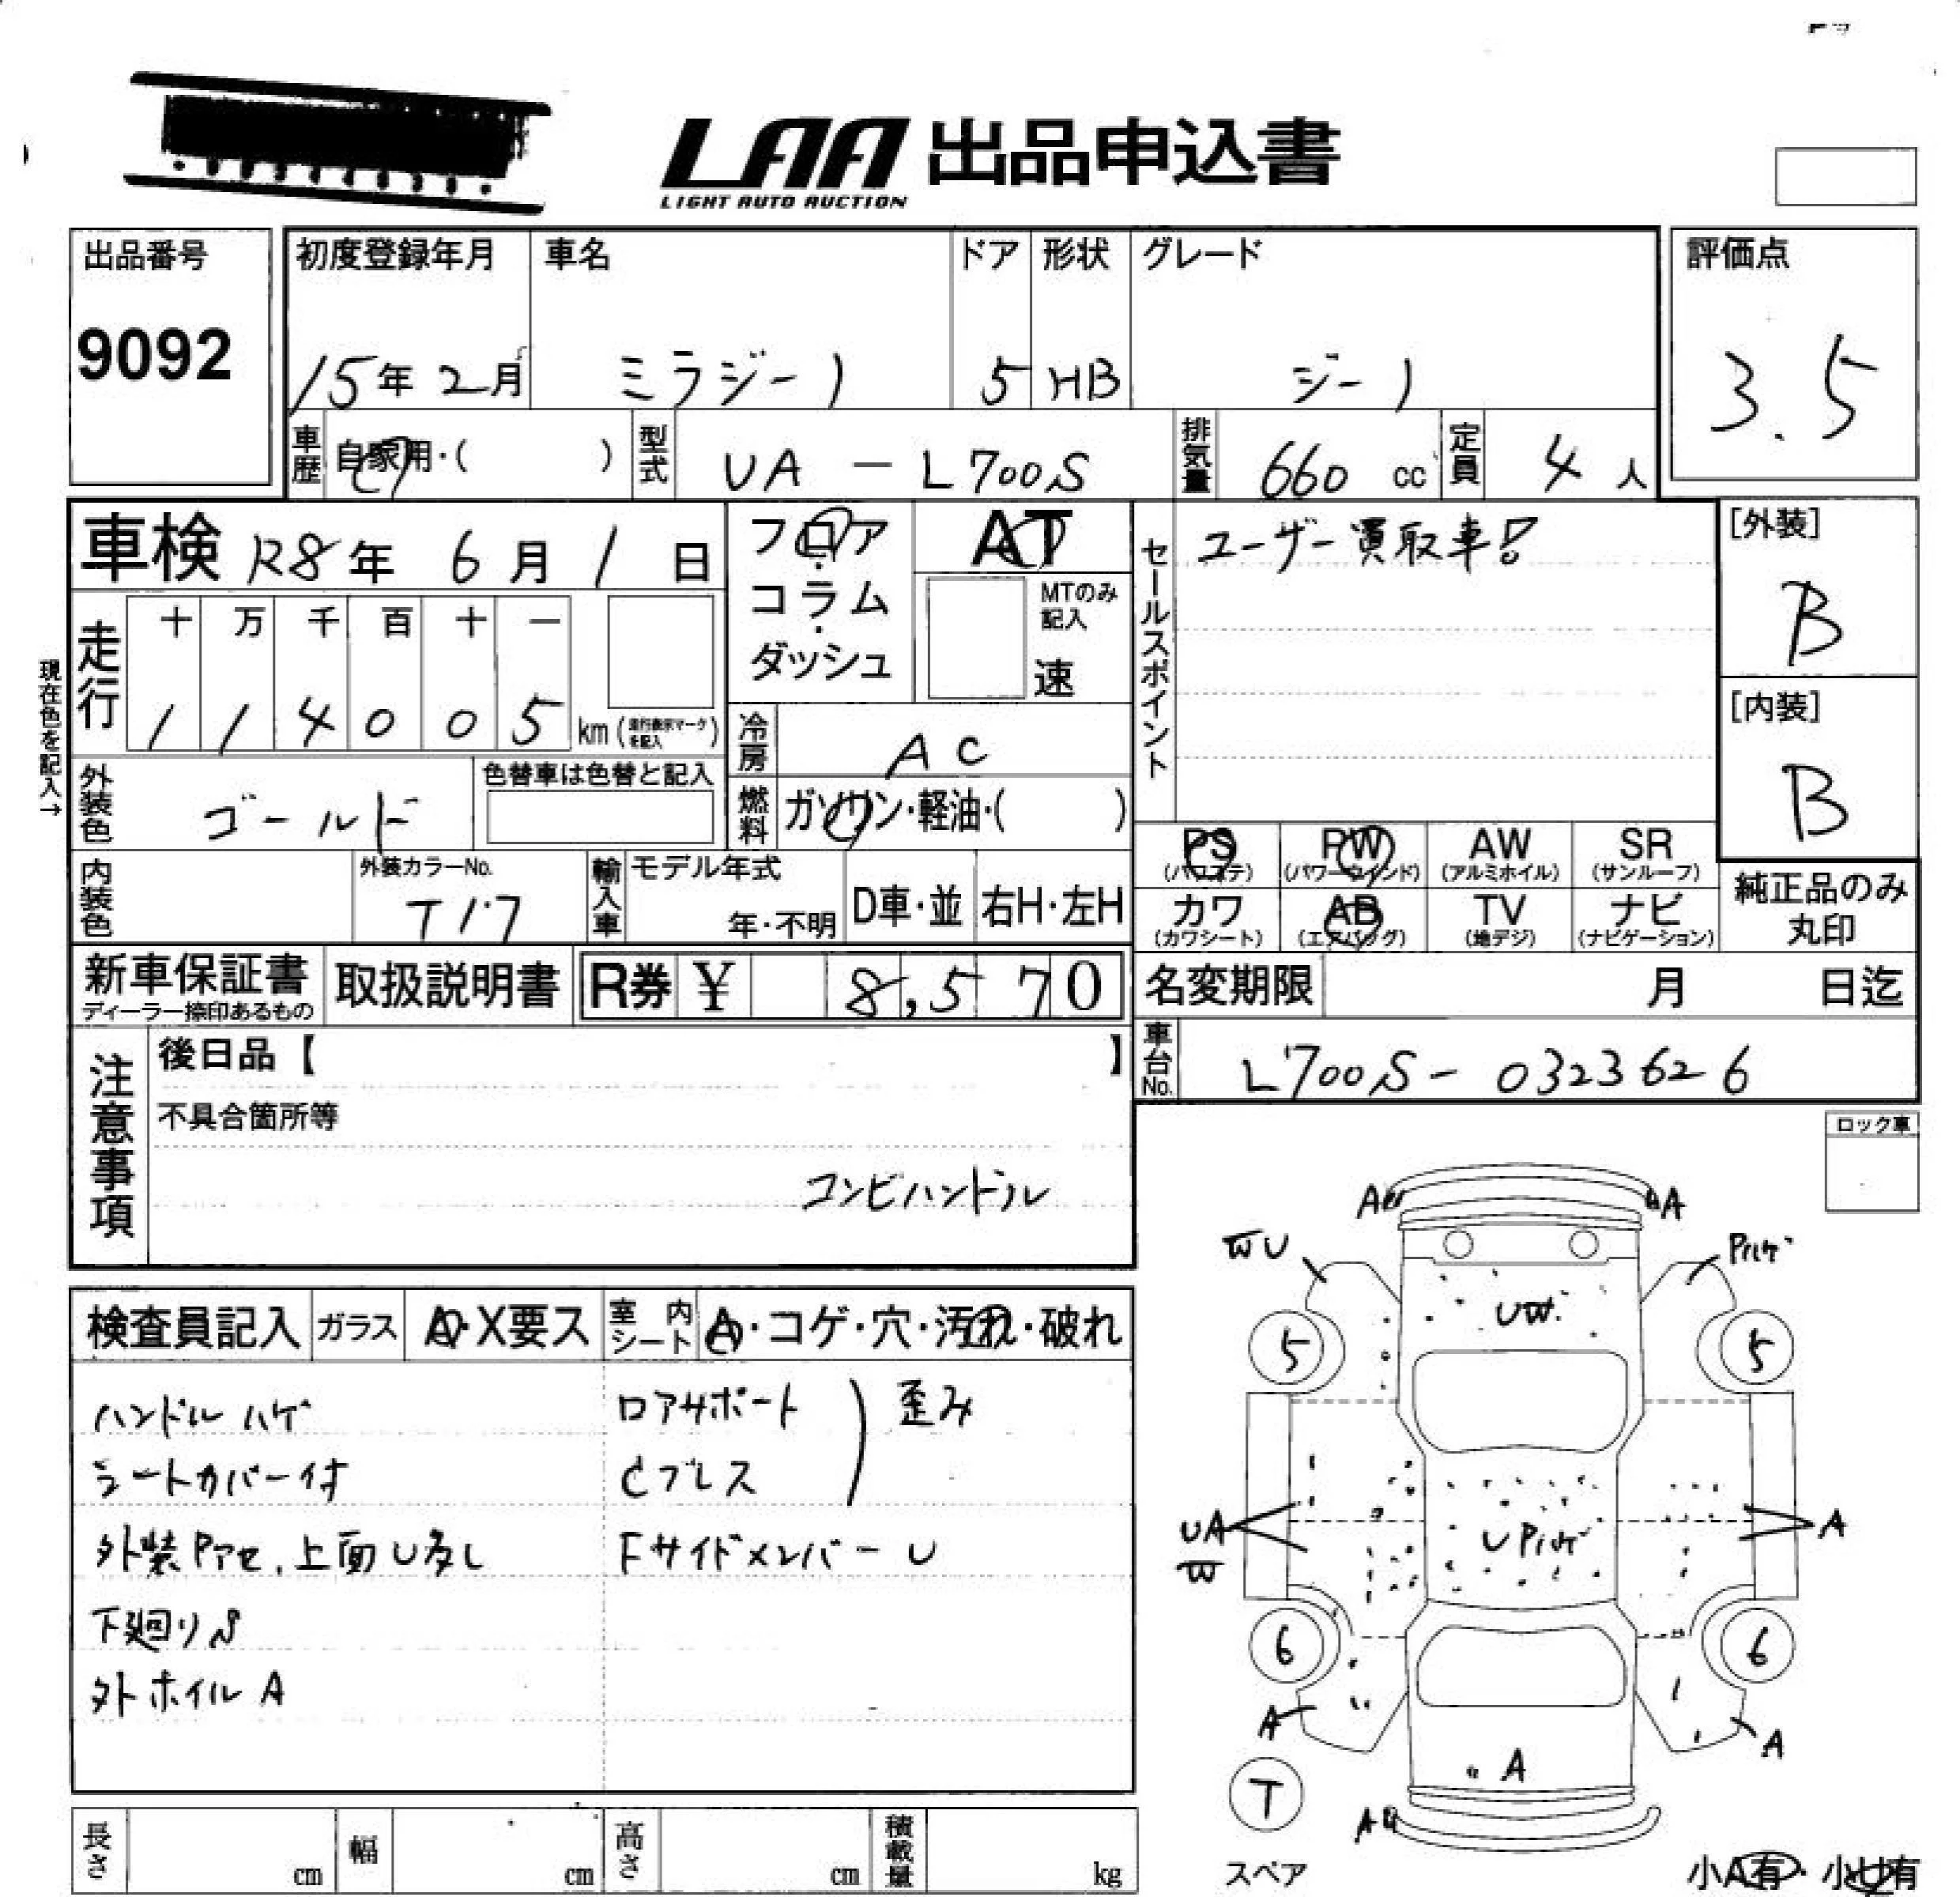 LAA 出品申込書
LIGHT AUTO AUCTION
出品番号
9092
初度登録年月
15年 2月
車名
ミラジーノ
ドア
5
形状
HB
グレード
ジーノ
評価点
3.5
車歴
自家用・( )
型式
UA - L700S
排気量
660 cc
定員
4 人
車検 R8年 6月 1日
フロア・コラム・ダッシュ
AT
MTのみ記入
速
セールスポイント
ユーザー買取車!
[外装]
B
[内装]
B
現在色を記入→
走行
十 万 千 百 十 一
1 1 4 0 0 5 km (走行表示マークを記入)
冷房
AC
外装色
ゴールド
色替車は色替と記入
燃料
ガソリン・軽油・( )
PS (パワステ)
PW (パワーウインド)
AW (アルミホイル)
SR (サンルーフ)
カワ (カワシート)
AB (エアバッグ)
TV (地デジ)
ナビ (ナビゲーション)
純正品のみ丸印
内装色
外装カラーNo.
T17
輸入車
モデル年式
年・不明
D車・並
右H・左H
新車保証書
ディーラー捺印あるもの
取扱説明書
R券 ¥ 8,570
名変期限 月 日迄
車台No.
L700S-0323626
注意事項
後日品【 】
不具合箇所等
コンビハンドル
ロック車
検査員記入
ガラス
A・X要ス
室内シート
A・コゲ・穴・汚れ・破れ
ハンドルハゲ
シートカバー付
外装Pアセ、上面U多し
下廻りS
外ホイルA
ロアサポート
Cプレス
歪み
Fサイドメンバー U
A
A
W U
Pハゲ
UW
5
5
UA
W
U Pハゲ
A
6
6
A
A
A
T
A
スペア
小A有・小U有
長さ cm
幅 cm
高さ cm
積載量 kg